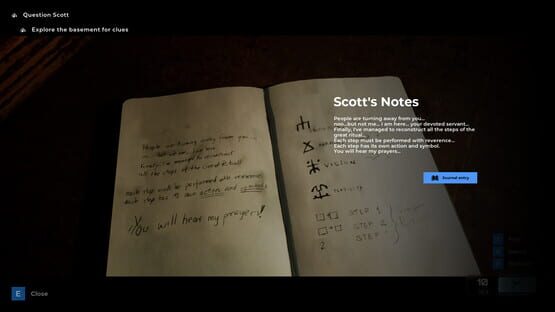 Question Scott
Explore the basement for clues
Scott's Notes
People are turning away from you...
noo...but not me... i am here... your devoted servant...
Finally, I've managed to reconstruct all the steps of the
great ritual...
Each step must be performed with reverence...
Each step has its own action and symbol.
You will hear my prayers...
Journal entry
People are turning away from you...
Finally I've managed to reconstruct
all the steps of the
Each step must be performed with reverence
Each step has its own action and symbol
You will hear my prayers!
VISION
STEP 1
STEP 2
2 STEP
10
E Close